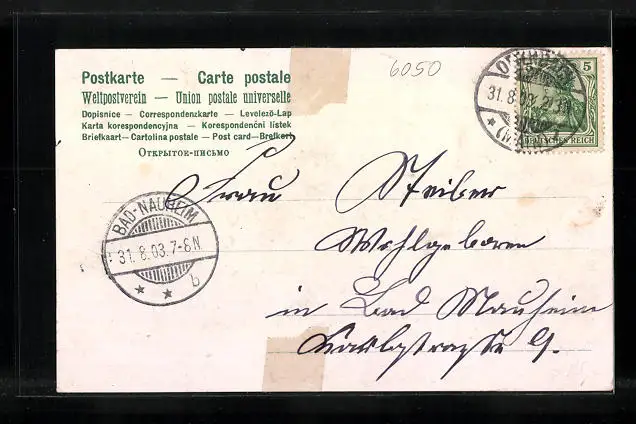 6050
Postkarte — Carte postale
Weltpostverein — Union postale universelle
Dopisnice — Correspondenzkarte — Levelező-Lap
Karta korespondencyjna — Korespondenční lístek
Briefkaart — Cartolina postale — Post card — Brefkort
Открытое письмо
5
DEUTSCHES REICH
31.8.03
BAD-NAUHEIM
31.8.03.7-8N.
* * b
Frau Steiber
Wohlgeboren
in Bad Nauheim
Karlstrasse 9.